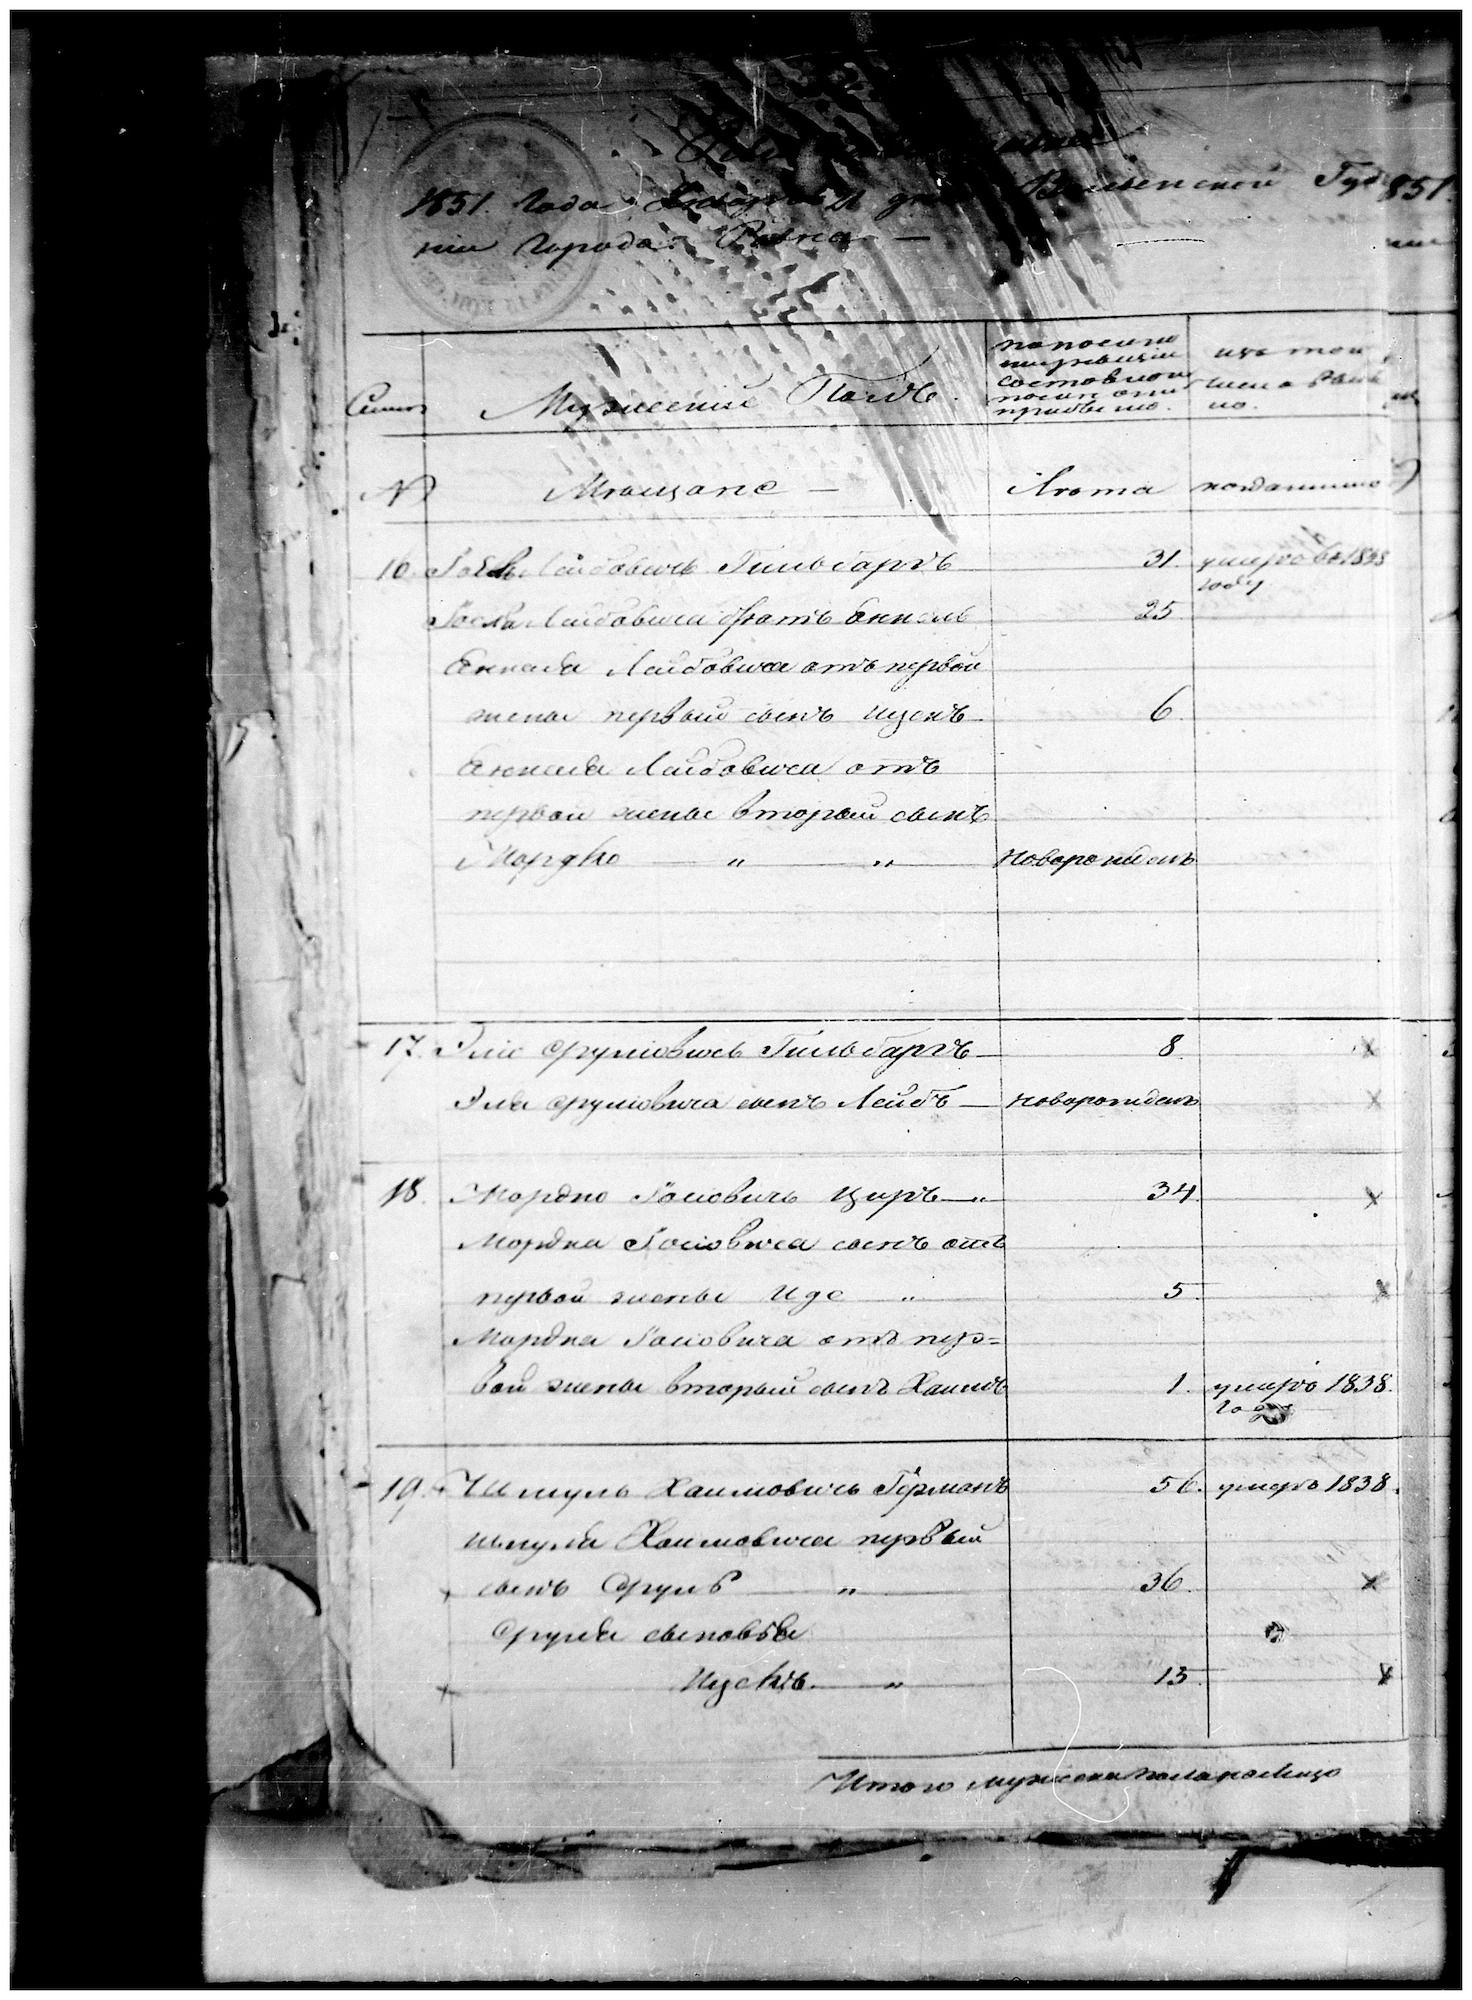 1851. Года Волынской Губ
нии Города Ровна —
Семьи
Мужеский Полъ.
по последней
ревизіи
состояло и
после оной
прибыло.
изъ того
числа выбы
ло.
№
Мещане —
Лета
когда именно
16. Лейбовичъ Гильбартъ 31. умеръ въ 1838
году
Лейбовича братъ Янкель 25
Янкеля Лейбовича отъ первой
жены первый сынъ Ицекъ 6.
Янкеля Лейбовича отъ
первой жены вторый сынъ
Мордко — „ — „ новорожденъ
17. Эліо Сруліовичъ Гильбартъ 8.
Эля Сруліовича сынъ Лейбъ — новорожденъ
18. Мордко Іосіовичъ Циръ — „ 34.
Мордка Іосіовича сынъ отъ
первой жены Иде „ 5.
Мордка Іосіовича отъ пер=
вой жены вторый сынъ Хаимъ 1. умеръ 1838.
году
19. Шмуль Хаимовичъ Германъ 56. умеръ 1838.
Шмуля Хаимовича первый
сынъ Сруль „ 36.
Сруля сыновья
Ицекъ. — „ 15.
Итого мужеска пола на лицо